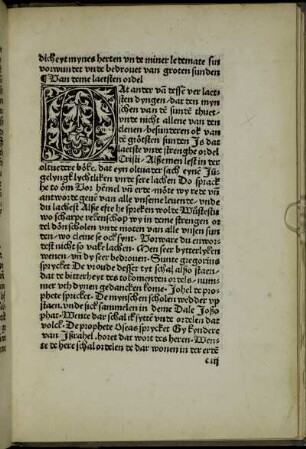 dicheyt mynes herten vnde miner ledemate sin
vorwundet vnde bedrouet van groten sunden
¶ Van deme laetsten ordel
At ander vn̄ desser ver laet
sten dyngen / dar den myn
schen van dē sunrē thuet /
vnde nicht allene van den
clenen / besunderen ok van
dē grōtsten sunden Is dat
laetste vnde strenghe ordel
Cristi. Alßemen lest in der
oltuedere bōke. dat eyn oltuader sach eynē Jū-
gelyngk lychtliken vnde sere lachen Do sprack
he to ōm Vor hēmel vn̄ erde mōte wy rede vn̄
antworde geuē van alle vnseme leuende. vnde
du lachest Alße efte he spreken wolde Wustestu
wo scharpe rekenschop wy in deme strengen or
del dōn scholen vnde moten van alle vnsen sun
den. wo cleine se ock synt. Vorware du enwor
dest nicht so vakē lachen. Men seer bytterlyken
wenen. vn̄ dy seer bedrouen. Sunte gregorius
sprycket De vroude desser tyt schal alßo staen.
dat de bitterheyt des to komenden ordels. num-
mer vth dynen gedancken kome. Johel de pro-
phete spricket. De mynschen scholen wedder vp
staen. vnde sick sammelen in deme Dale Josa
phat. Wente dar schal ik sytten vnde ordelen dat
volck. De prophete Oseas sprycket Gy kyndere
van Jßrahel. horet dat wort des heren. Wen-
te de here schal ordelen de dar wonen in der erdē
c iij